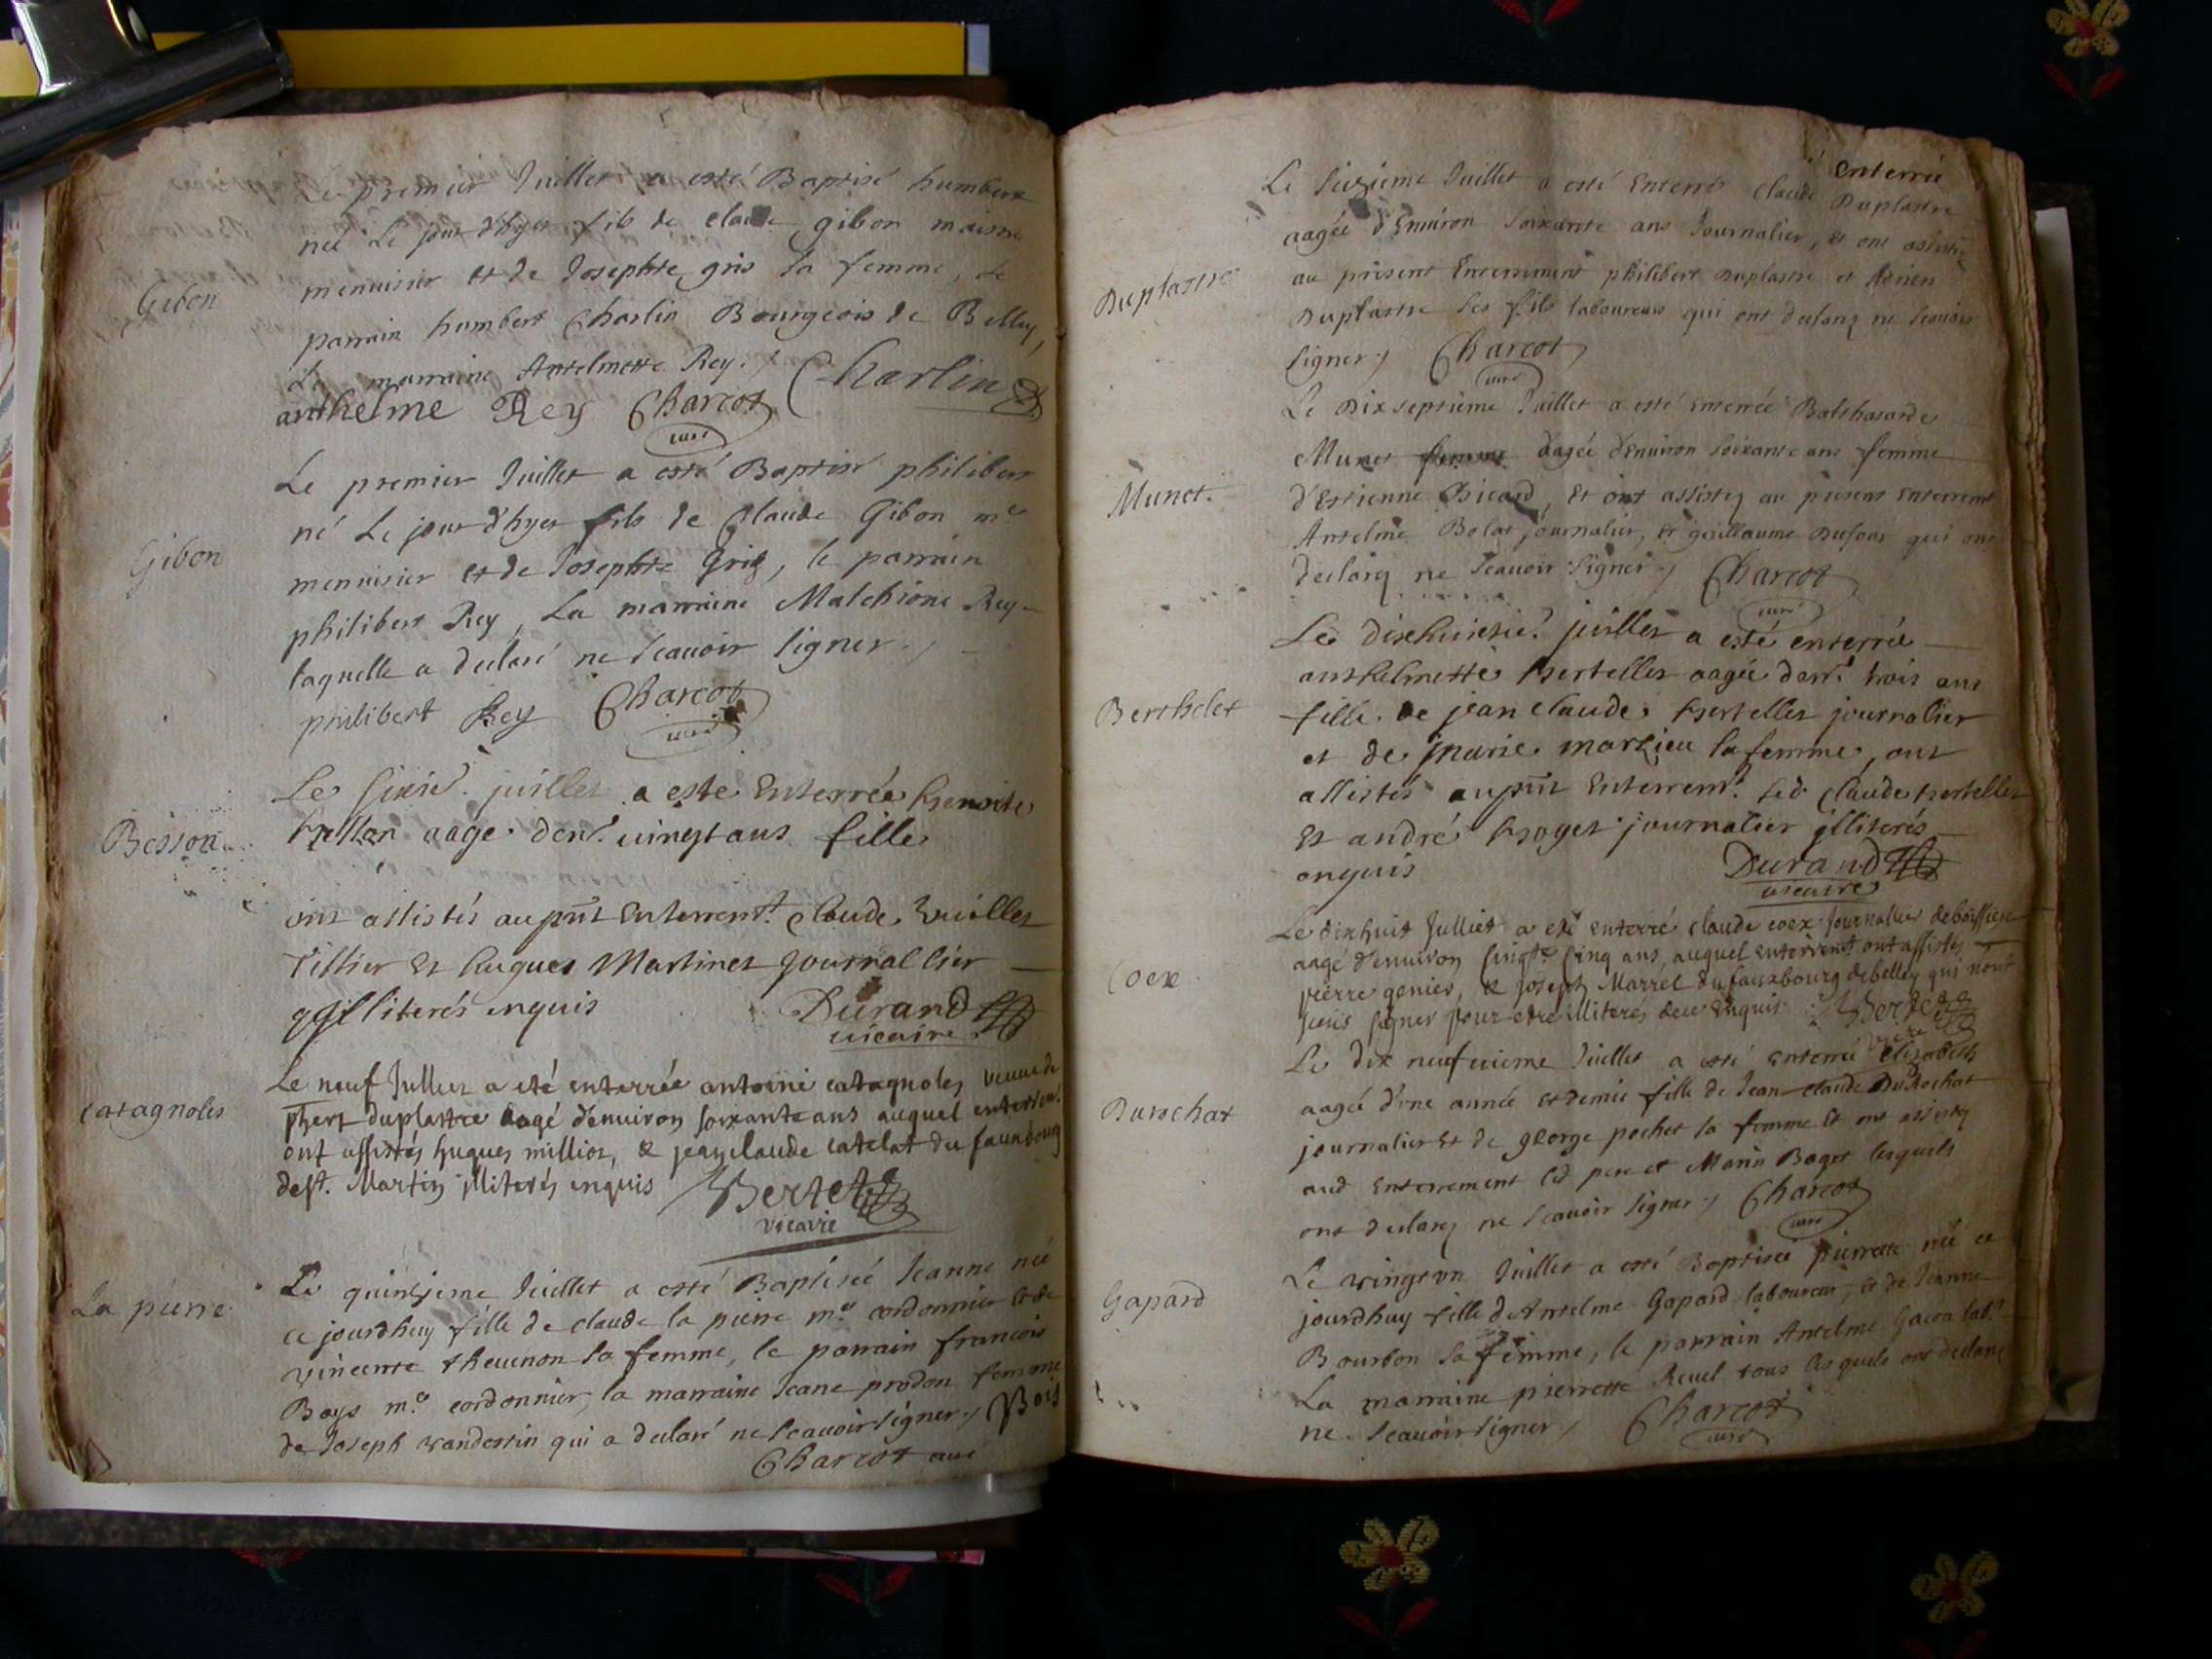 Le premier Juillet a esté Baptisé humbert
né Le jour d'hyer fils de claude gibon maistre
Gibon
menuisier et de Josephte gris sa femme, Le
parrain humbert Charlin Bourgeois de Belley,
La marraine Antelmette Rey ./ Charlin
anthelme Rey Charcot
curé
Le premier Juillet a esté Baptisé philibert
né Le jour d'hyer fils de Claude Gibon me
Gibon
menuisier et de Josephte Gris, le parrain
philibert Rey, La marraine Malchione Rey
laquelle a declaré ne scauoir signer ./
philibert Rey Charcot
curé
Le sixie. juillet a este Enterrée benoite
Besson
aage denv. uingt ans fille
ont assistés au pnt Enterremt. Claude
Tissier Et hugues Martinet Journallier
illiterés enquis Durand
uicaire
Le neuf Jullet a eté enterrée antoine catagnoles veuue de
Catagnoles
phert duplastre aagé d'enuiron soixante ans auquel enterremt.
ont assistés hugues millios, & jean claude catelat du fauxbourg
de st. Martin illiterés enquis Bertet
vicaire
Le quinsjeme Juillet a esté Baptisée Jeanne née
La pierre
ce jourdhuy fille de claude la pierre me. cordonnier et de
vincente theuenon sa femme, le parrain francois
Boys me. cordonnier, la marraine Jeane prodon femme
de Joseph vandestin qui a declaré ne scauoir signer ./ Bois
Charcot curé
enterré
Le seizieme Juillet a esté Enterré Claude Duplastre
aagée d'Enuiron soixante ans Journalier, et ont assistez
Duplastre
au présent Enterrement philibert Duplastre et Adrien
Duplastre ses fils laboureurs qui ont declarez ne scauoir
signer ./ Charcot
curé
Le Dixseptieme Juillet a esté enterrée Balthasarde
Munet femme aagée d'Enuiron soixante ans femme
Munet.
d'Estienne Bicard, Et ont assistez au present enterrement
Antelme Bolat journalier, Et guillaume Dufour qui ont
declarez ne scauoir signer ./ Charcot
curé
Le dixhuictie. juillet a esté enterrée
anthelmette bertellet aagée denv. trois ans
Berthelet
fille de jean Claude bertellet journalier
et de marie martieu sa femme, ont
assistés au pnt Enterremt. led. Claude bertellet
Et andré boget journalier illiterés
enquis Durand
uicaire
Le dixhuit Julliet a eté enterré claude coex Journallier de boissieu
aagé d'enuiron Cinqte. Cinq ans, auquel enterremt ont assistés
Coex
pierre genies, & joseph Marret du fauxbourg de belley qui n'ont
sceus signer pour etre illiterés de ce Enquis Bertet
vicre
Le dix neufuieme Juillet a esté enterrée elizabeth
aagée d'une année et demie fille de Jean claude DuRochat
Durochat
journalier Et de george pochet sa femme Et ont assistez
aud enterrement led pere et Marin Boget lesquels
ont declarez ne scauoir signer ./ Charcot
curé
Le vingt un Juillet a esté Baptisée pierrette née ce
jourdhuy fille d'Antelme Gapard laboureur, et de Jeanne
Gapard
Bourbon sa femme, le parrain Antelme Gacon labr.
La marraine pierrette Reuel tous lesquels ont declaré
ne scauoir signer ./ Charcot
curé